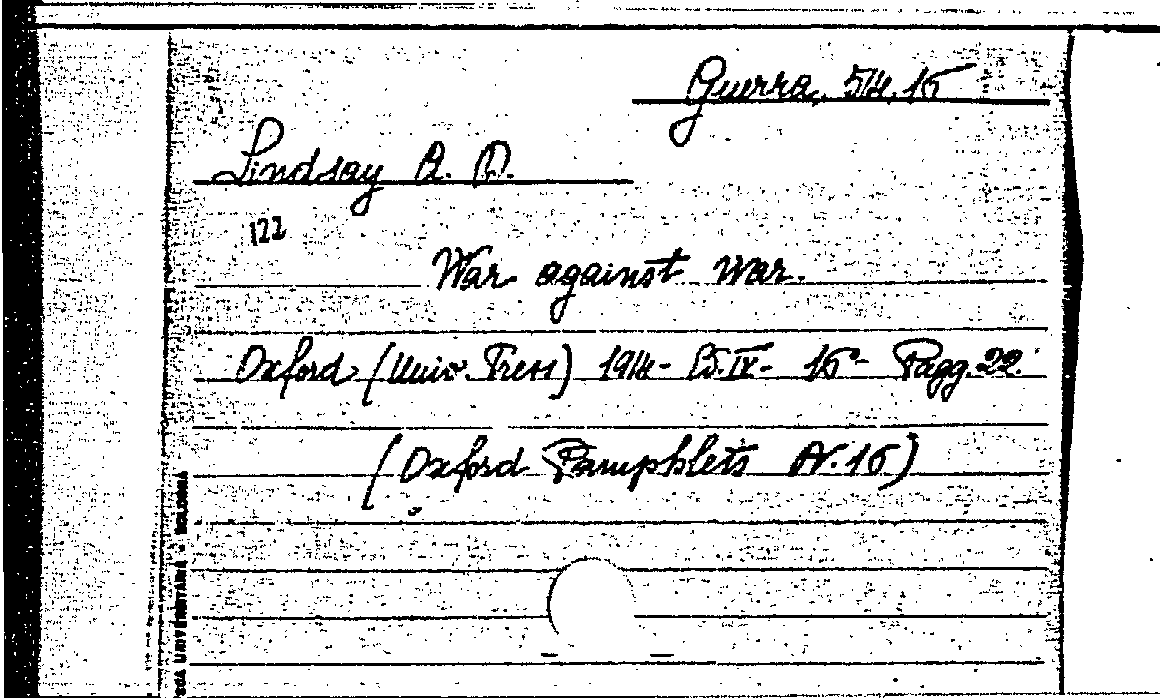 Guerra, 514.15
Lindsay A. D.
122
War against war.
Oxford (Univ. Press) 1914 - In IV - 15 - Pagg. 22.
(Oxford Pamphlets N. 15)
UNIVERSITARIA BOLOGNA